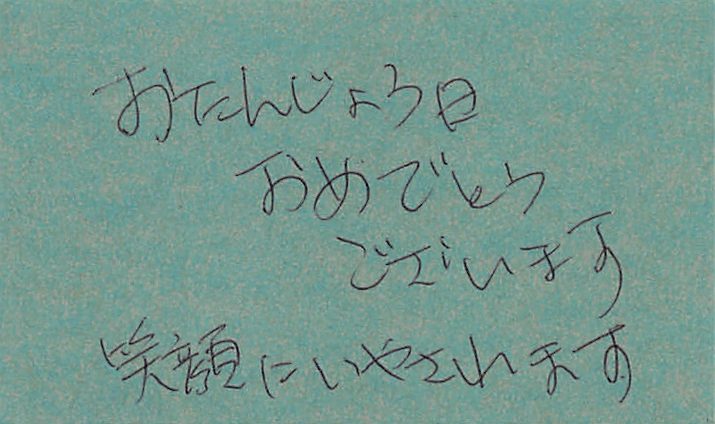 おたんじょう日
おめでとう
ございます
笑顔にいやされます